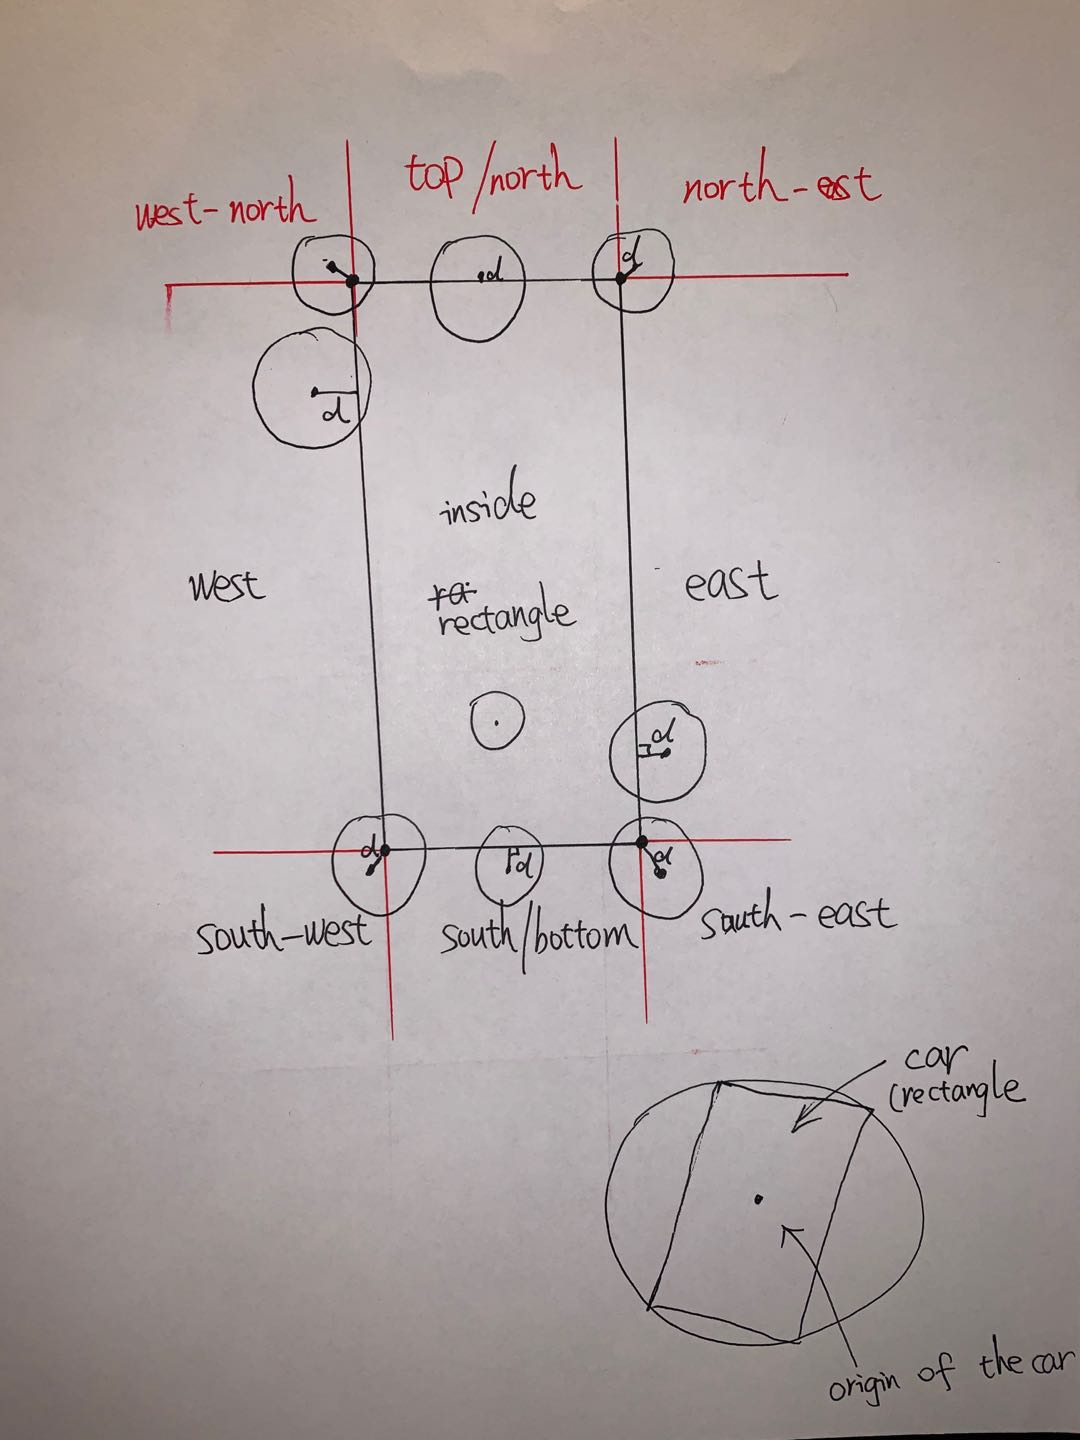 top/north
west-north
north-est
d
d
d
inside
west
east
rectangle
d
d
d
d
south-west
south/bottom
south-east
car
(rectangle
origin of the car